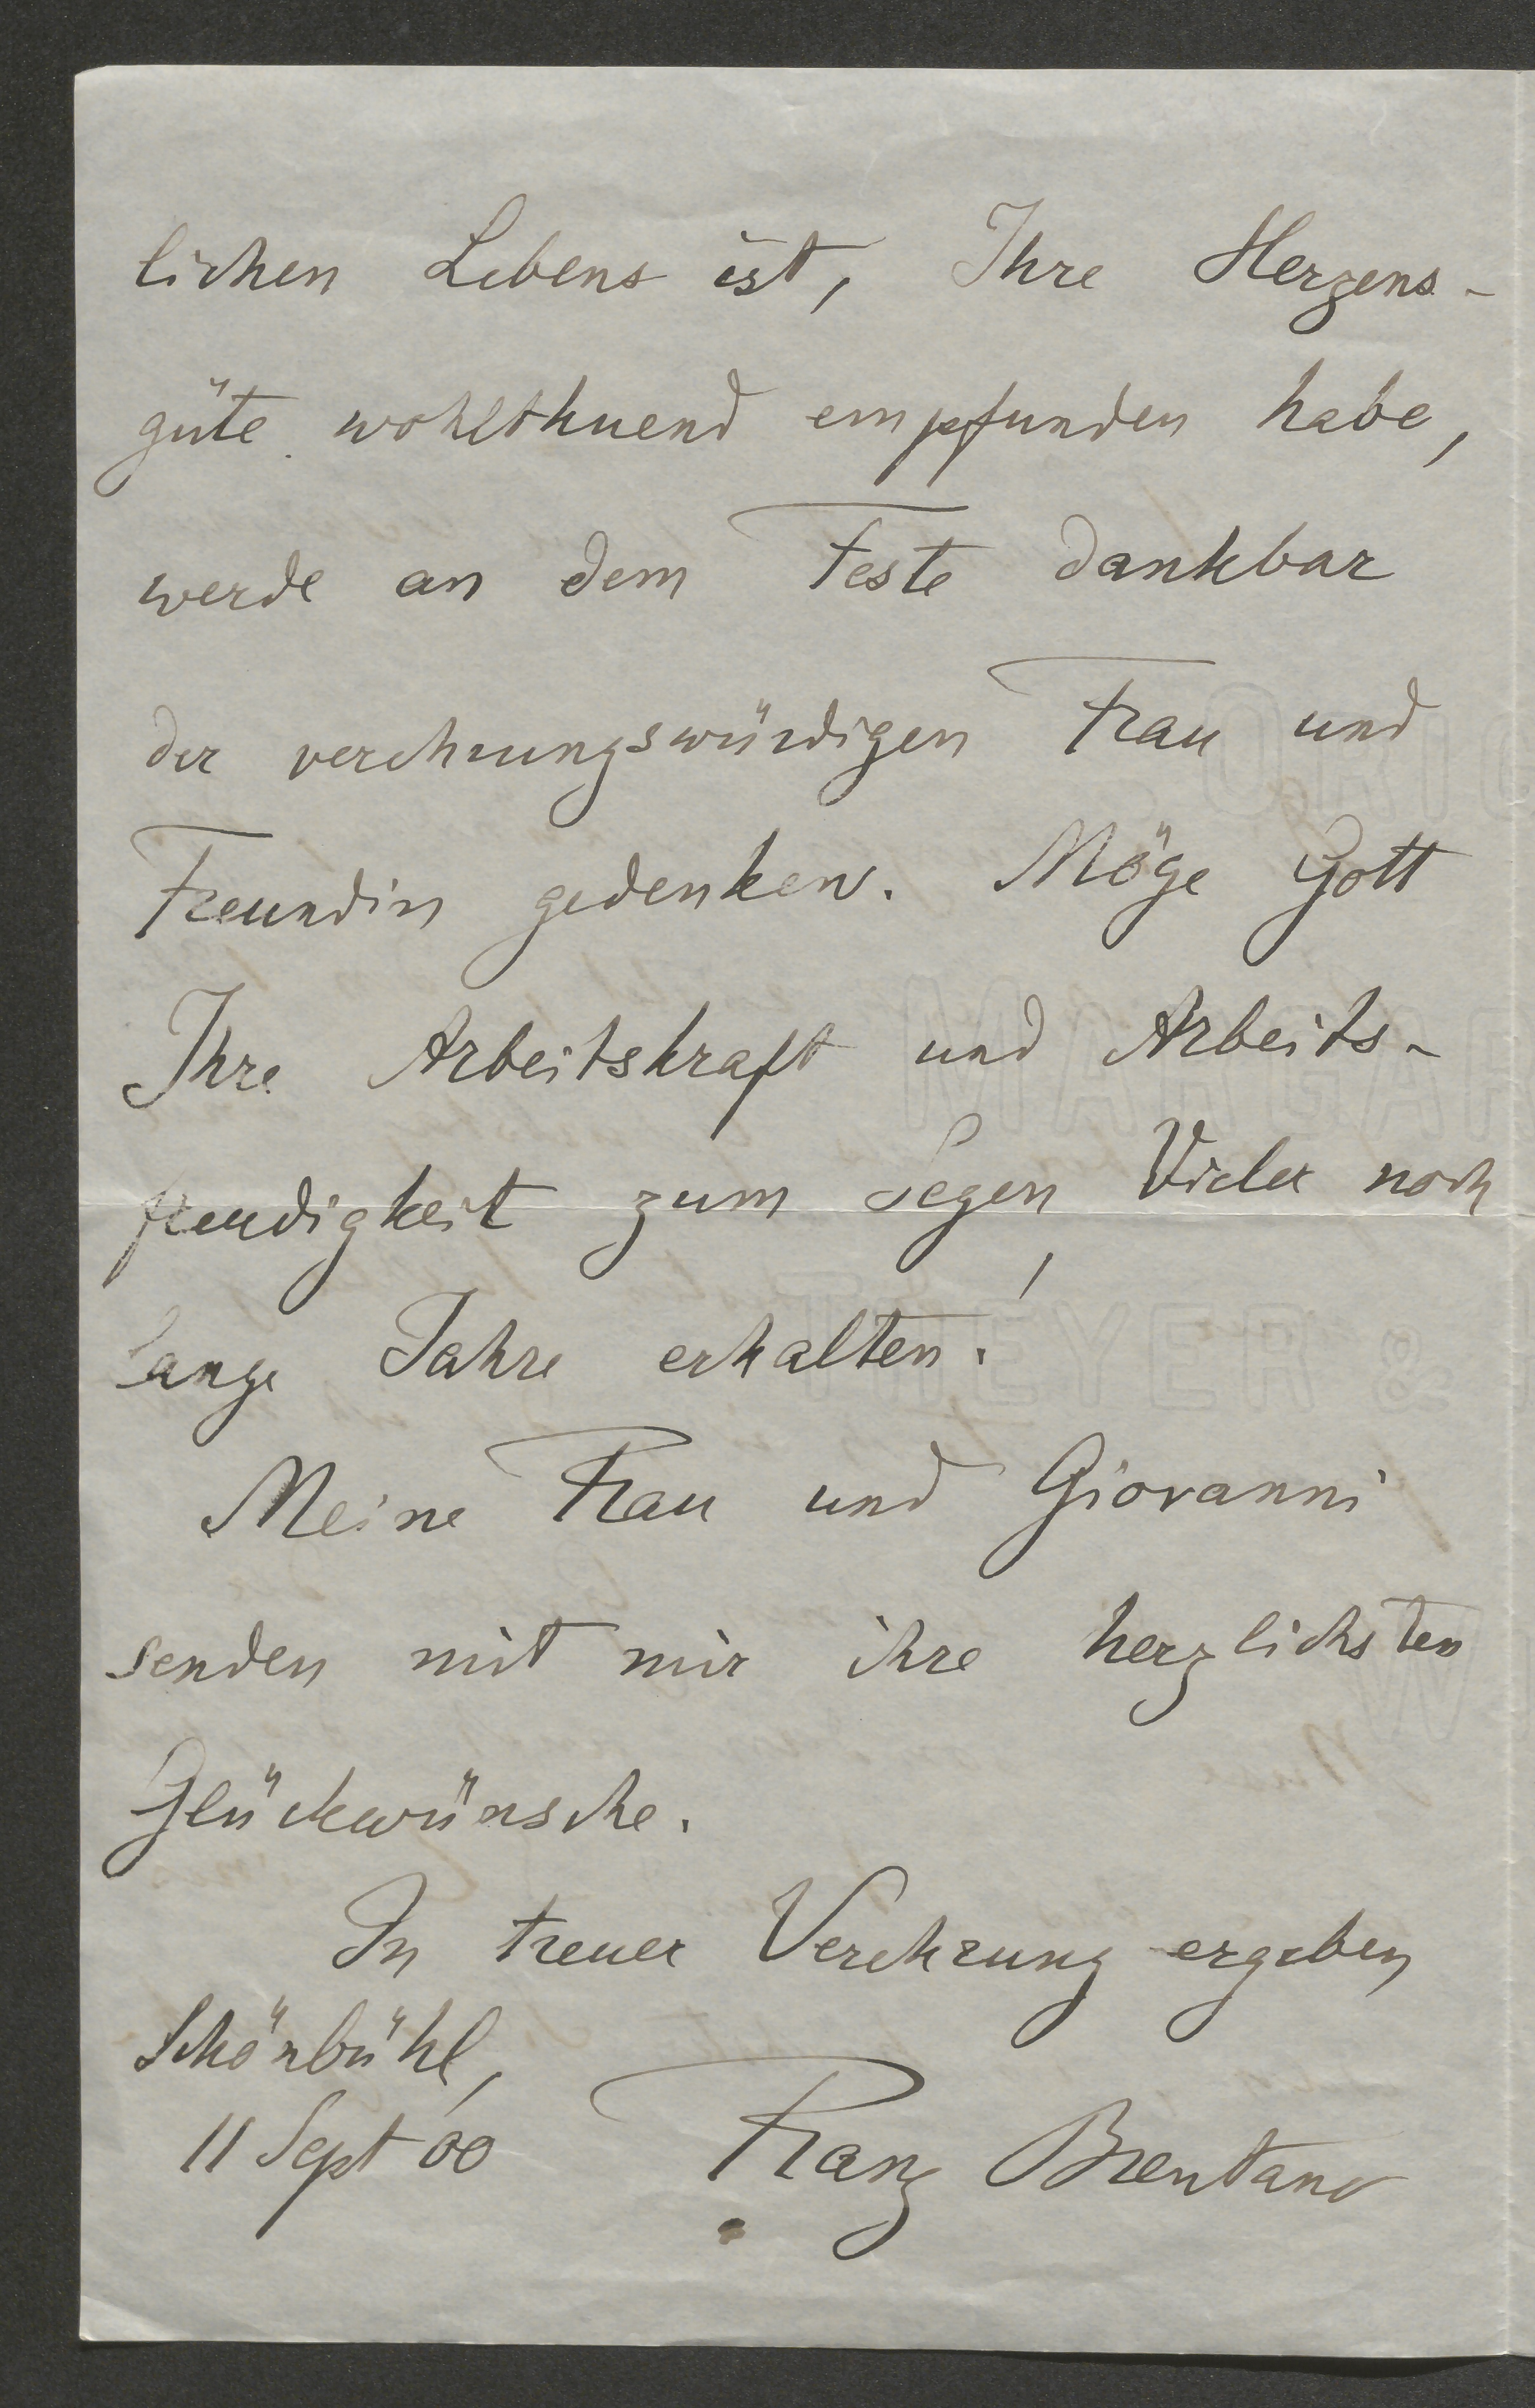 lichen Lebens ist, Ihre Herzens-
güte wohlthuend empfunden habe,
werde an dem Feste dankbar
der verehrungswürdigen Frau und
Freundin gedenken. Möge Gott
Ihre Arbeitskraft und Arbeits-
freudigkeit zum Segen Vieler noch
lange Jahre erhalten!
Meine Frau und Giovanni
senden mit mir ihre herzlichsten
Glückwünsche.
In treuer Verehrung ergeben
Schönbühl,
11 Sept 00 Franz Brentano